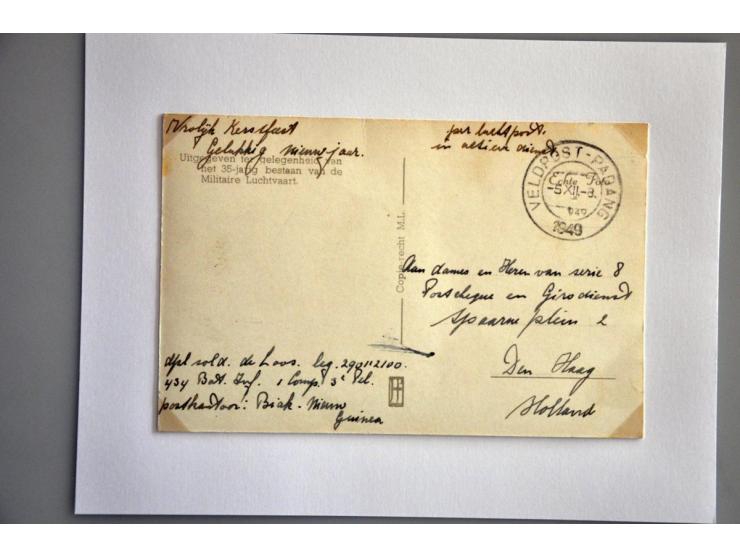 Vrolijk Kerstfeest
Gelukkig nieuwjaar.
Uitgegeven ter gelegenheid van
het 35-jarig bestaan van de
Militaire Luchtvaart.
Copie-recht M.L.
per luchtpost.
in actieve dienst
VELDPOST-PADANG
5 XII
1949
Aan dames en Heren van serie 8
Postcheque en Girodienst
Spaarneplein 2
Den Haag
Holland
dpl sold. de Loos. leg. 290112100.
434 Bat. Inf. 1 Comp. 3e Pel.
postkantoor: Biak. Nieuw
Guinea